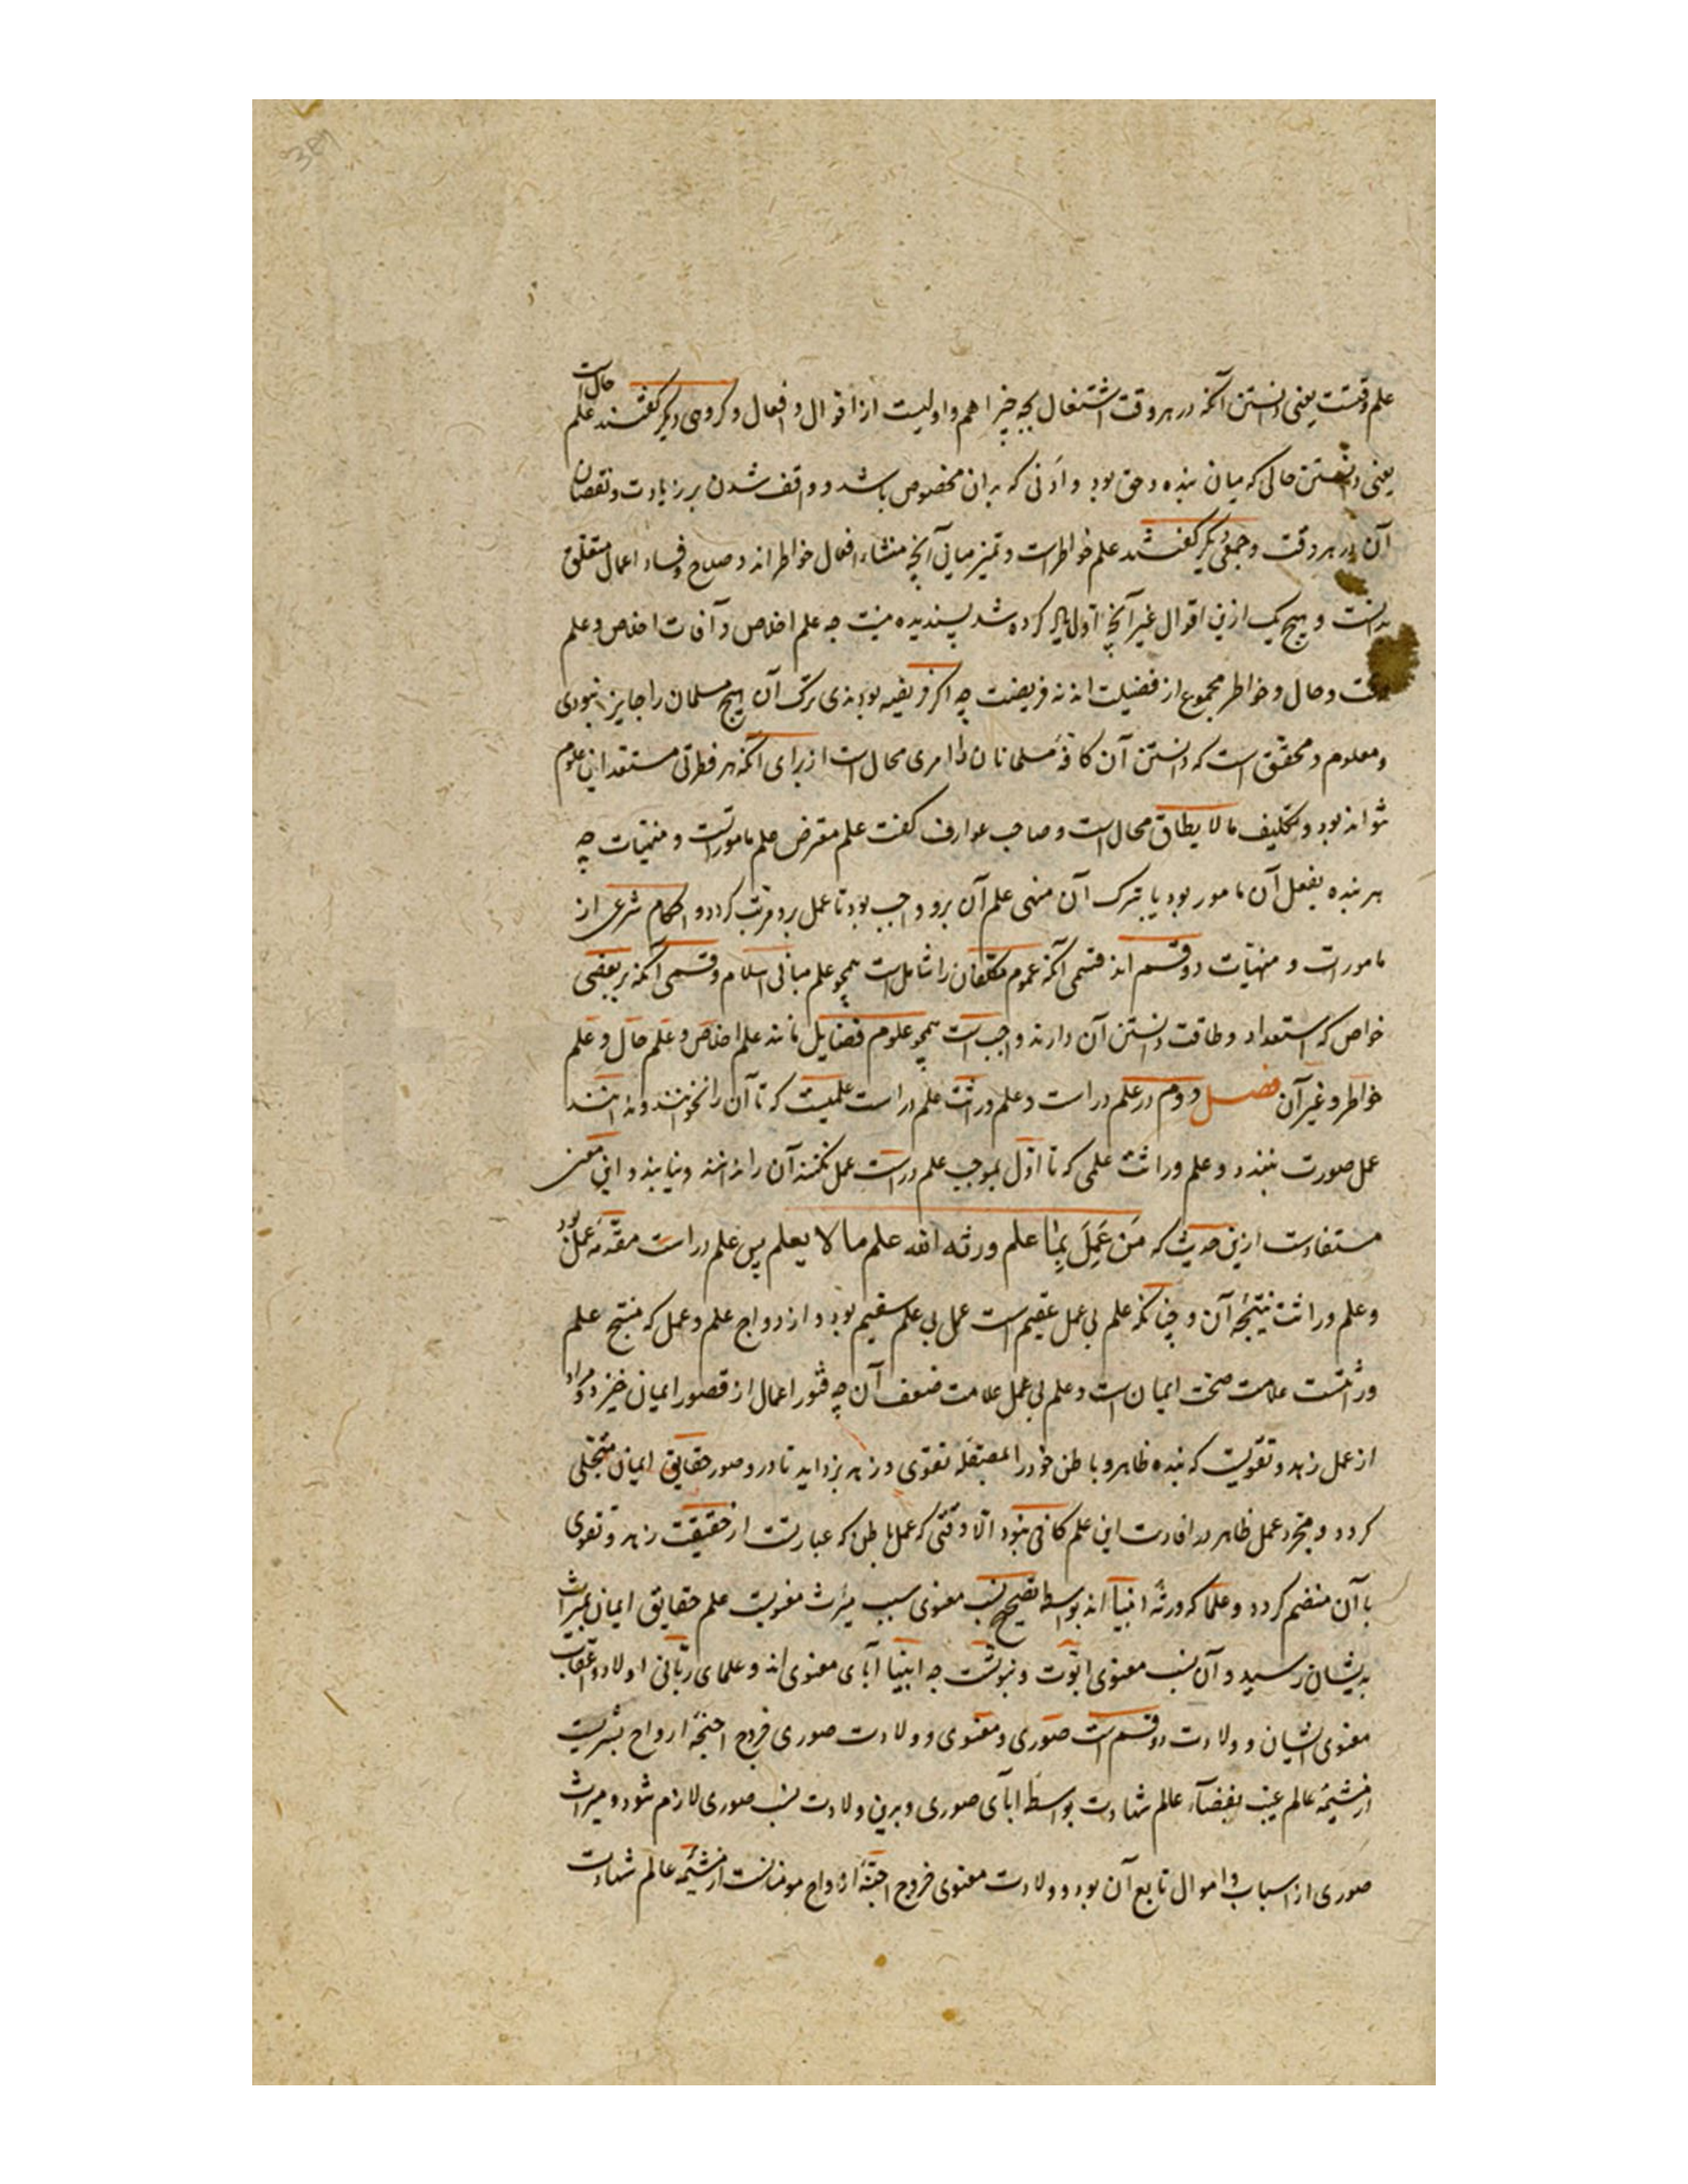 علم وقتست یعنی دانستن آنکه در هر وقت اشتغال بچه چیز اهم و اولیست از اقوال و افعال و کروهی دیکر کفتند علم حالست
یعنی دانستن حالی که میان بنده و حق بود و ادبی که بدان مخصوص باشد و واقف شدن بر زیادت و نقصان
آن در هر وقت و جمعی دیکر کفتند علم خواطرست و تمیز میانی آنچه منشاء افعال خواطراند و صلاح و فساد اعمال متعلق
بدانست و هیچ یک ازین اقوال غیر آنچه اول یاد کرده شد پسندیده نیست چه علم اخلاص و آفات اخلاص و علم
وقت و حال و خواطر مجموع از فضیلت اند نه فریضت چه اکر فریضه بودندی ترک آن هیچ مسلمان را جایز نبودی
و معلوم و محقق است که دانستن آن کافهٔ مسلمانان را امری محال است از برای آنکه هر فطرتی مستعد این علوم
نتواند بود و تکلیف ما لا یطاق محال است و صاحب عوارف کفت علم مفترض علم مامورات و منهیات چه
هر بنده بفعل آن مامور بود یا بترک آن منهی علم آن برو واجب بود تا عمل برو مرتب کردد و احکام شرعی از
مامورات و منهیات دو قسم اند قسمی آنکه عموم مکلفان را شاملست همچو علم مبانی اسلام و قسمی آنکه بر بعضی
خواص که استعداد و طاقت دانستن آن دارند واجب است همچو علوم فضایل مانند علم اخلاص و علم حال و علم
خواطر و غیر آن فصل دوم در علم دراست و علم وراثت علم دراست علمیست که تا آن را نخوانند و ندانند
عمل صورت نبندد و علم وراثت علمی که تا اول بموجب علم دراست عمل نکنند آن را ندانند و نیابند و این معنی
مستفادست ازین حدیث که مَن عَمِلَ بِمَا علم ورثه الله علم ما لا یعلم پس علم دراست مقدمهٔ عمل بود
و علم وراثت نتیجهٔ آن و چنانکه علم بی عمل عقیم است عمل بی علم سقیم بود و ازدواج علم و عمل که منتج علم
وراثتست علامت صحت ایمان است و علم بی عمل علامت ضعف آن چه فتور اعمال از قصور ایمان خیزد و مراد
از عمل زهد و تقویست که بنده ظاهر و باطن خود را بمصقلهٔ تقوی و زهد بزداید تا درو صور حقایق ایمان متجلی
کردد و مجرد عمل ظاهر در افادت این علم کافی نبود الا وقتی که عمل باطن که عبارتست از حقیقت زهد و تقوی
با آن منضم کردد و علما که ورثهٔ انبیا اند بواسطهٔ تصحیح نسب معنوی سبب میراث معنویست علم حقایق ایمان بمیراث
بدیشان رسید و آن نسب معنوی ابوت و نبوتست چه انبیا آبای معنوی اند و علمای ربانی اولاد و اعقاب
معنوی ایشان و ولادت دو قسم است صوری و معنوی و ولادت صوری خروج اجنهٔ ارواح بشریست
از مشیمهٔ عالم غیب بفضآء عالم شهادت بواسطهٔ ابآی صوری و برین ولادت نسب صوری لازم شود و میراث
صوری از اسباب و اموال تابع آن بود و ولادت معنوی خروج اجنهٔ ارواح مومنانست از مشیمهٔ عالم شهادت